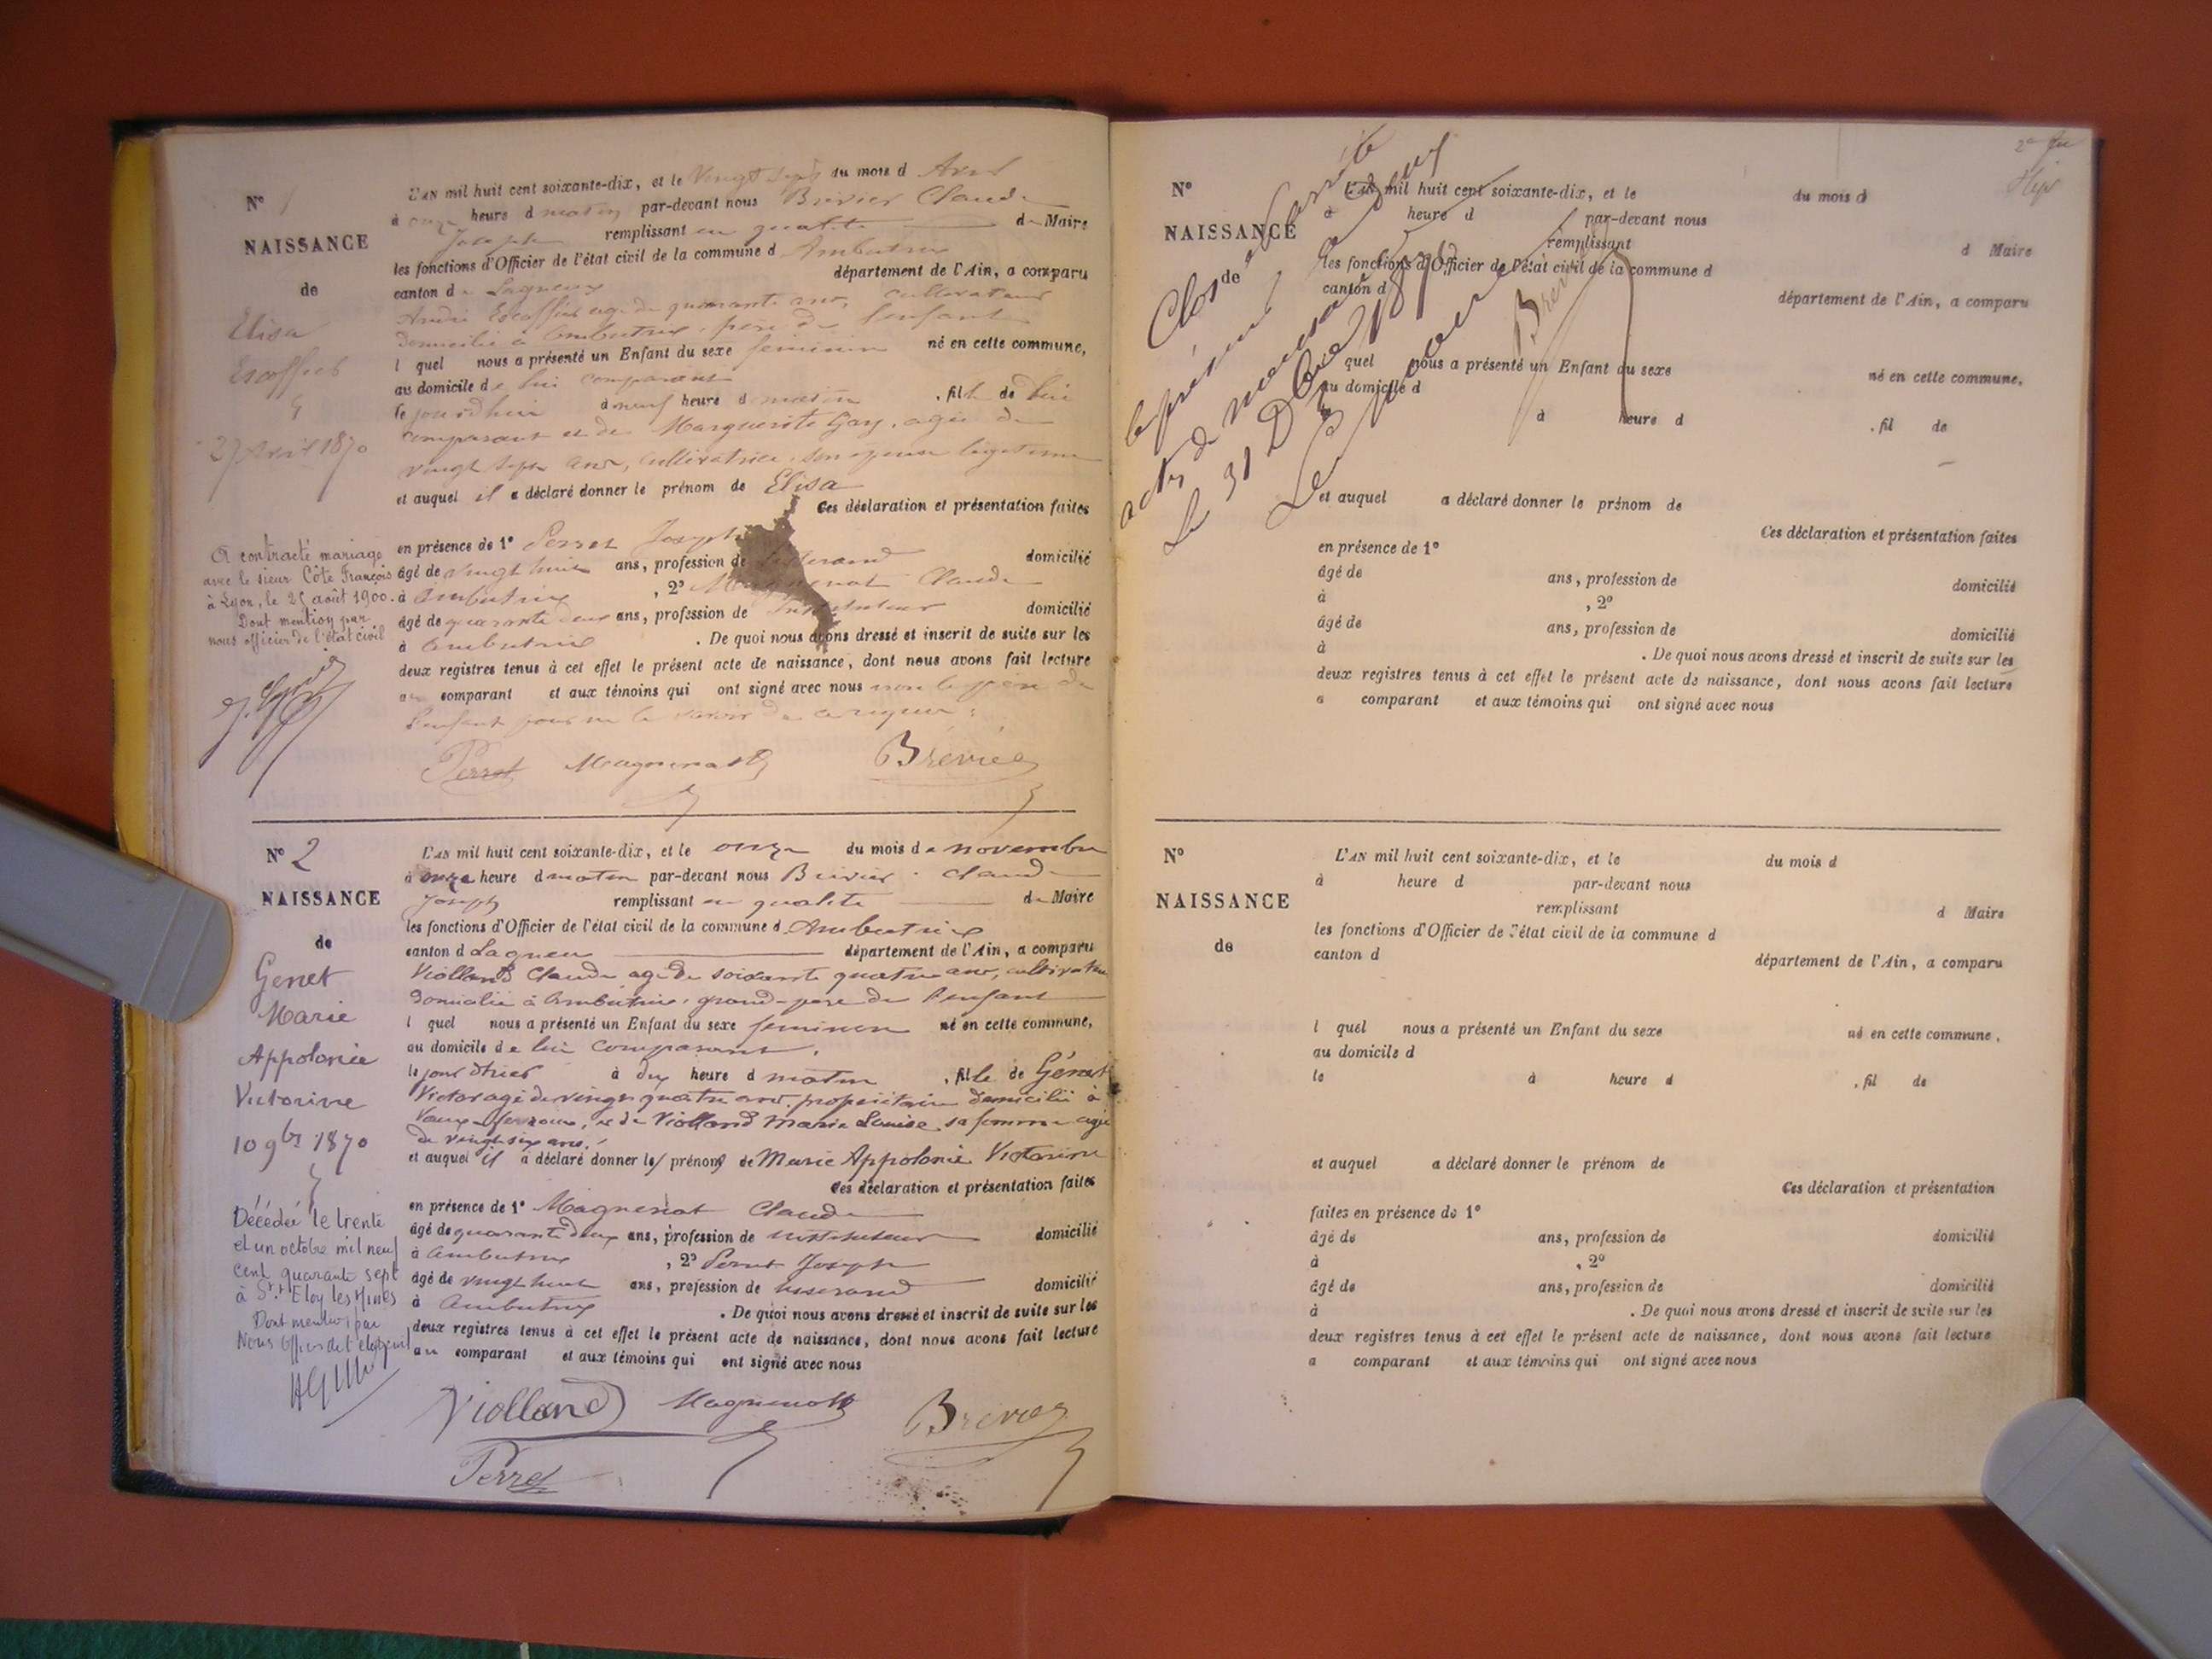 N° 1
NAISSANCE
de
Elisa
Escoffier
27 Avril 1870
A contracté mariage
avec le sieur Côte François
à Lyon, le 25 août 1900.
Dont mention par
nous officier de l'état civil
L'AN mil huit cent soixante-dix, et le Vingt Sept du mois d Avril
à onze heure d matin par-devant nous Brévier Claude
Joseph remplissant en qualité de Maire
les fonctions d'Officier de l'état civil de la commune d Ambutrix
canton de Lagnieu département de l'Ain, a comparu
André Escoffier agé de quarante ans, cultivateur
domicilié à Ambutrix, père de l'enfant
l quel nous a présenté un Enfant du sexe féminin né en cette commune,
au domicile de lui comparant
le jourdhui à neuf heure d matin , fille de lui
comparant et de Marguerite Gay, agée de
vingt sept ans, cultivatrice, son épouse légitime
et auquel il a déclaré donner le prénom de Elisa
Ces déclaration et présentation faites
en présence de 1° Perret Joseph
âgé de vingt huit ans, profession de tisserand domicilié
à Ambutrix , 2° Magnenot Claude
âgé de quarante deux ans, profession de Instituteur domicilié
à Ambutrix . De quoi nous avons dressé et inscrit de suite sur les
deux registres tenus à cet effet le présent acte de naissance, dont nous avons fait lecture
au comparant et aux témoins qui ont signé avec nous non le père de
l'enfant pour ne le savoir de ce requis.
Perret Magnenot Brévier
N° 2
NAISSANCE
de
Genet
Marie
Appolonie
Victorine
10 9bre 1870
Décédée le trente
et un octobre mil neuf
cent quarante sept
à St. Eloy les Mines
Dont mention par
Nous Officier de l'état civil
L'AN mil huit cent soixante-dix, et le onze du mois de novembre
à onze heure d matin par-devant nous Brévier Claude
Joseph remplissant en qualité de Maire
les fonctions d'Officier de l'état civil de la commune d Ambutrix
canton d Lagnieu département de l'Ain, a comparu
Violland Claude agé de soixante quatre ans, cultivateur
domicilié à Ambutrix, grand-père de l'enfant
l quel nous a présenté un Enfant du sexe féminin né en cette commune,
au domicile de lui comparant,
le jour dhier à dix heure d matin , fille de Génet
Victor agé de vingt quatre ans, propriétaire domicilié à
Vaux, et de Violland Marie Louise sa femme agée
de vingt six ans.
et auquel il a déclaré donner les prénoms de Marie Appolonie Victorine
Ces déclaration et présentation faites
en présence de 1° Magnenot Claude
âgé de quarante deux ans, profession de instituteur domicilié
à Ambutrix , 2° Perret Joseph
âgé de vingt huit ans, profession de tisserand domicilié
à Ambutrix . De quoi nous avons dressé et inscrit de suite sur les
deux registres tenus à cet effet le présent acte de naissance, dont nous avons fait lecture
au comparant et aux témoins qui ont signé avec nous
Violland Magnenot Brévier
Perret
Clos et arrêté
le présent
actes de naissance
le 31 Xbre 1870
Le maire
Brévier
N°
NAISSANCE
de
L'AN mil huit cent soixante-dix, et le du mois d
à heure d par-devant nous
remplissant d Maire
les fonctions d'Officier de l'état civil de la commune d
canton d département de l'Ain, a comparu
quel nous a présenté un Enfant du sexe né en cette commune,
au domicile d
à heure d , fil de
et auquel a déclaré donner le prénom de
Ces déclaration et présentation faites
en présence de 1°
âgé de ans, profession de domicilié
à , 2°
âgé de ans, profession de domicilié
à . De quoi nous avons dressé et inscrit de suite sur les
deux registres tenus à cet effet le présent acte de naissance, dont nous avons fait lecture
a comparant et aux témoins qui ont signé avec nous
N°
NAISSANCE
de
L'AN mil huit cent soixante-dix, et le du mois d
à heure d par-devant nous
remplissant d Maire
les fonctions d'Officier de l'état civil de la commune d
canton d département de l'Ain, a comparu
l quel nous a présenté un Enfant du sexe né en cette commune,
au domicile d
le à heure d , fil de
et auquel a déclaré donner le prénom de
Ces déclaration et présentation
faites en présence de 1°
âgé de ans, profession de domicilié
à , 2°
âgé de ans, profession de domicilié
à . De quoi nous avons dressé et inscrit de suite sur les
deux registres tenus à cet effet le présent acte de naissance, dont nous avons fait lecture
a comparant et aux témoins qui ont signé avec nous